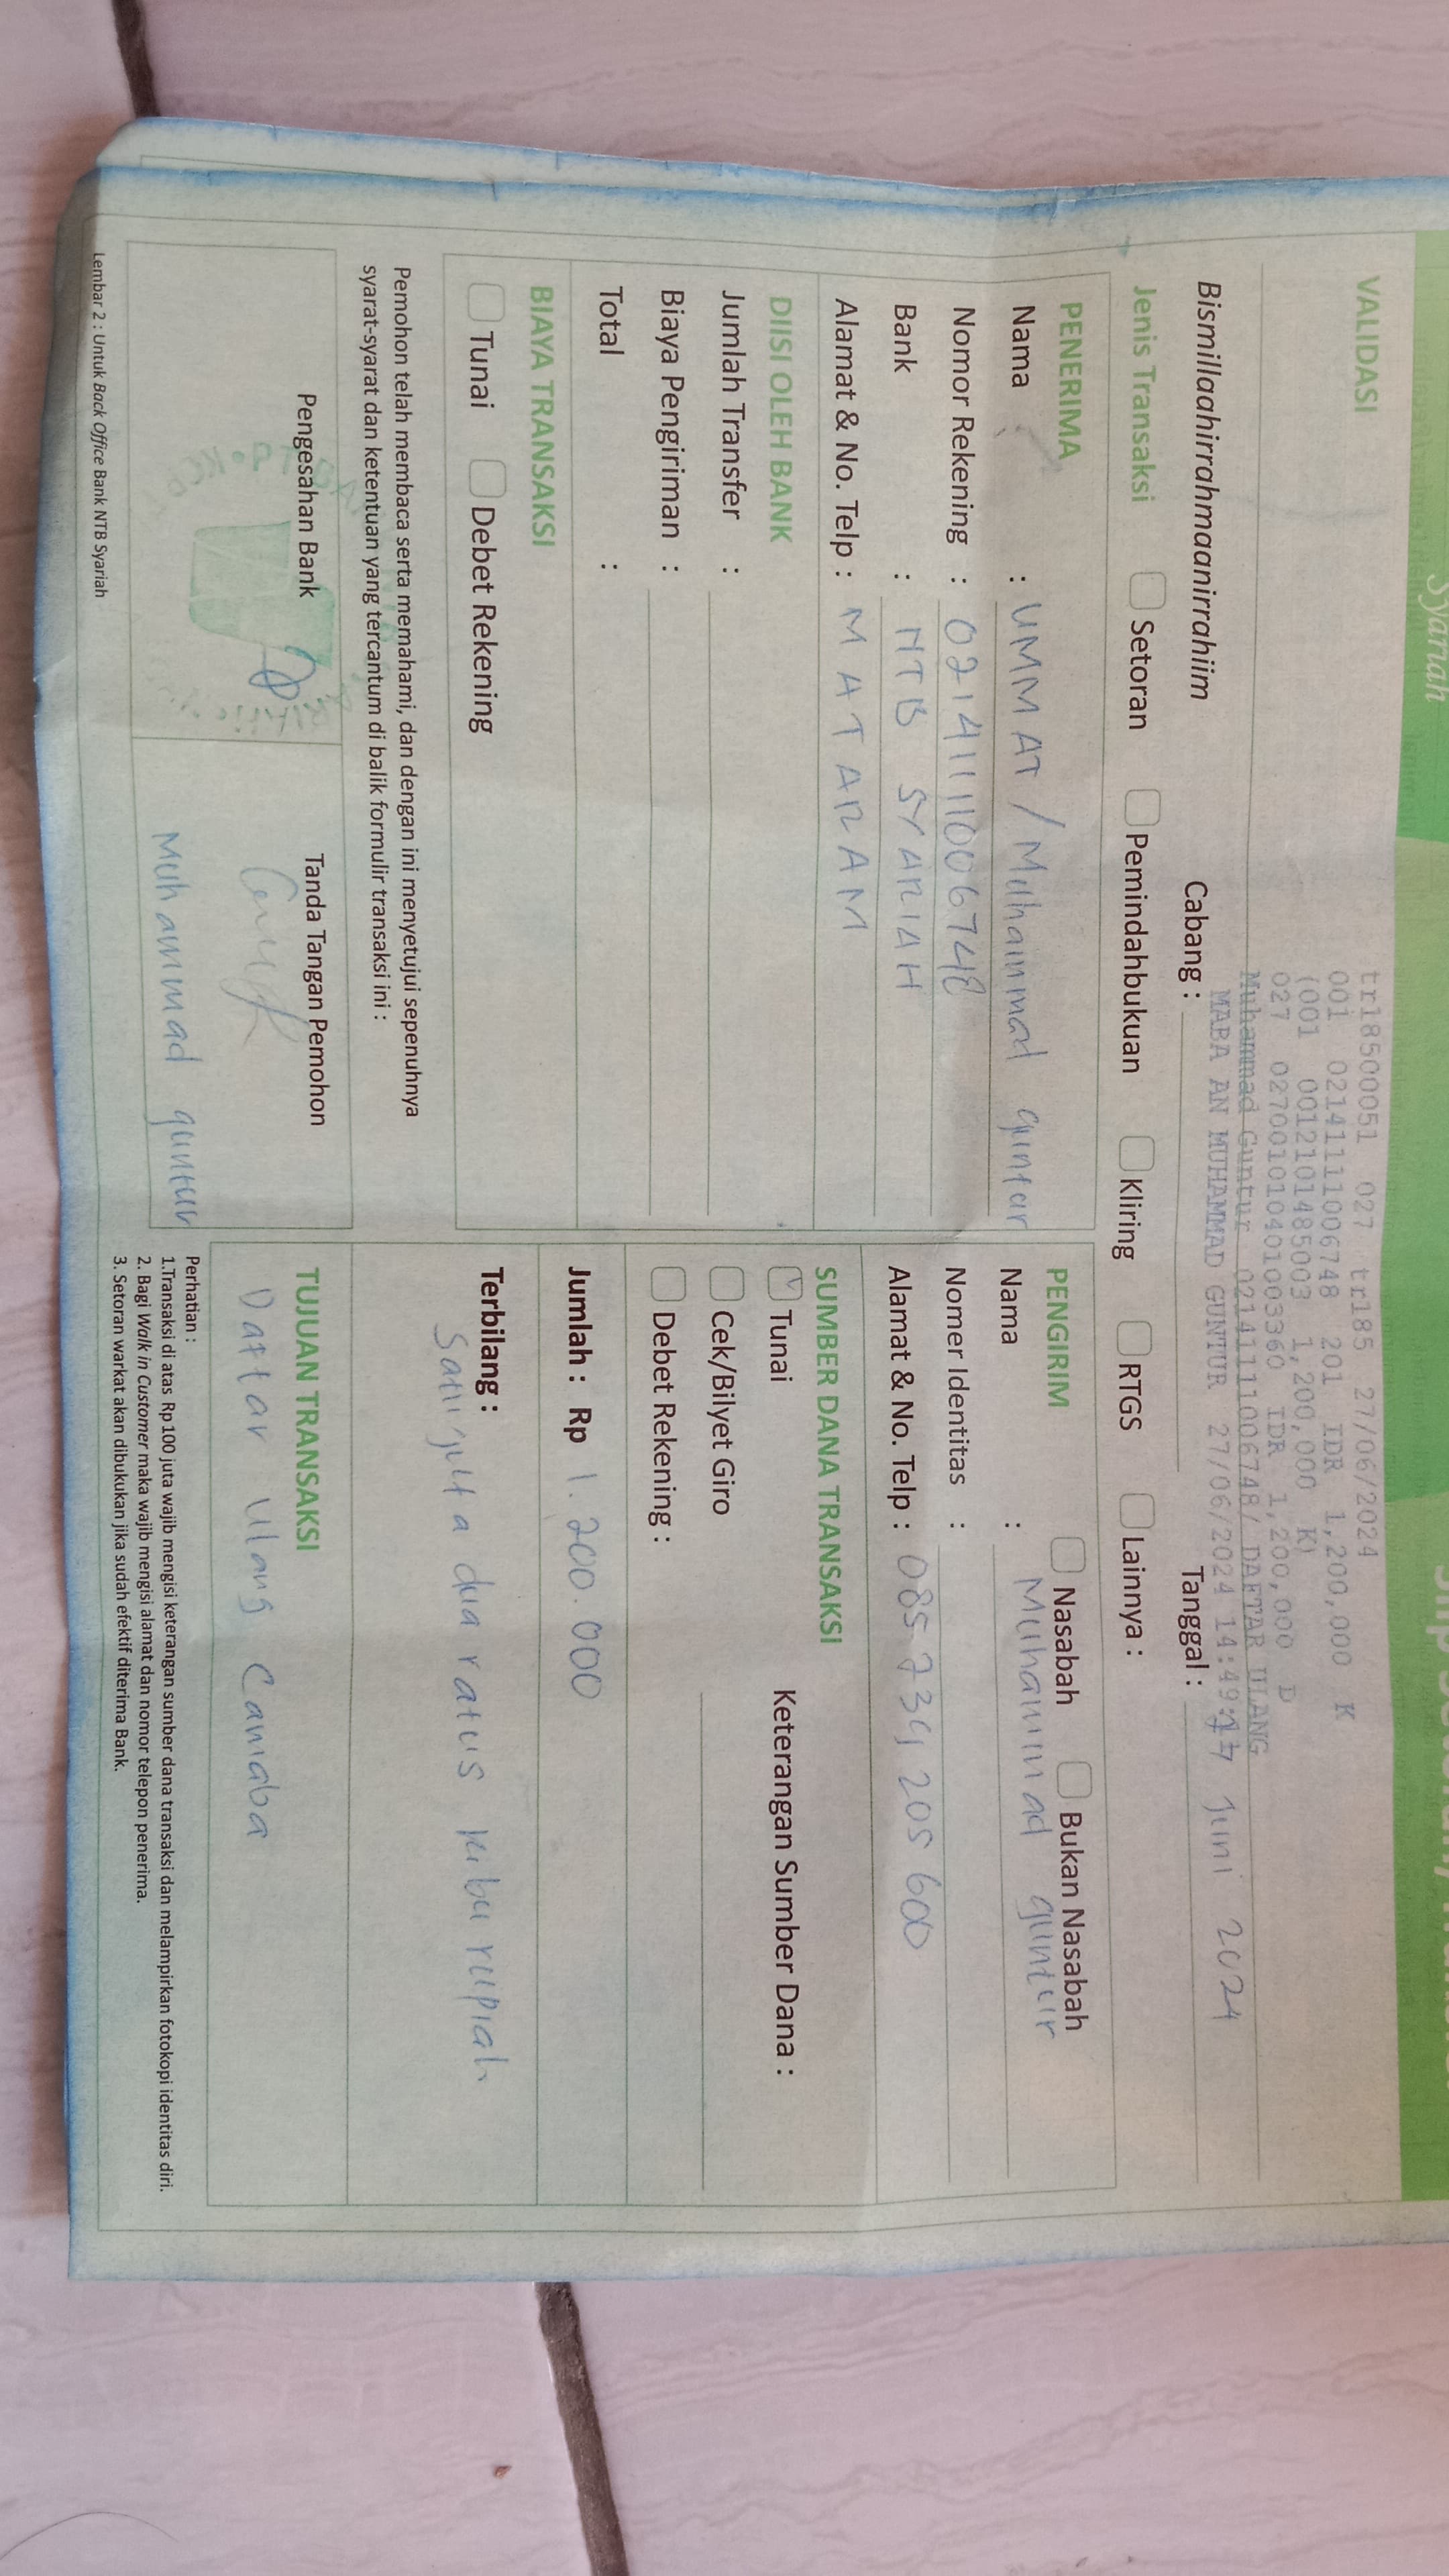 Syariah
VALIDASI
tr18500051 027 tr185 27/06/2024
001 0214111110067​48 201 IDR 1,200,000 K
(001 0012101485003 1,200,000 K)
027 0270010104010033​60 IDR 1,200,000 D
Muhammad Guntur 021411111006748/ DAFTAR ULANG
MABA AN MUHAMMAD GUNTUR 27/06/2024 14:49:
Bismillaahirrahmaanirrahiim
Cabang :
Tanggal : 27 Juni 2024
Jenis Transaksi Setoran Pemindahbukuan Kliring RTGS Lainnya :
PENERIMA
Nama : UMMAT / Muhammad guntur
Nomor Rekening : 021411111006748
Bank : NTB SYARIAH
Alamat & No. Telp : MATARAM
DIISI OLEH BANK
Jumlah Transfer :
Biaya Pengiriman :
Total :
BIAYA TRANSAKSI
Tunai Debet Rekening
Pemohon telah membaca serta memahami, dan dengan ini menyetujui sepenuhnya
syarat-syarat dan ketentuan yang tercantum di balik formulir transaksi ini :
Pengesahan Bank
Tanda Tangan Pemohon
Muhammad guntur
Lembar 2 : Untuk Back Office Bank NTB Syariah
PENGIRIM Nasabah Bukan Nasabah
Nama : Muhammad guntur
Nomer Identitas :
Alamat & No. Telp : 085 739 205 600
SUMBER DANA TRANSAKSI
Tunai Keterangan Sumber Dana :
Cek/Bilyet Giro
Debet Rekening :
Jumlah : Rp 1.200.000
Terbilang :
Satu juta dua ratus ribu rupiah
TUJUAN TRANSAKSI
Daftar ulang Camaba
Perhatian :
1.Transaksi di atas Rp 100 juta wajib mengisi keterangan sumber dana transaksi dan melampirkan fotokopi identitas diri.
2. Bagi Walk in Customer maka wajib mengisi alamat dan nomor telepon penerima.
3. Setoran warkat akan dibukukan jika sudah efektif diterima Bank.